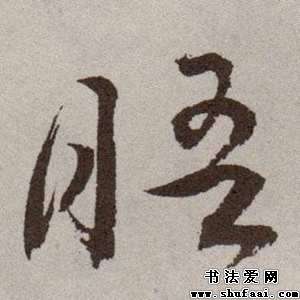 晤
书法爱网
www.shufaai.com